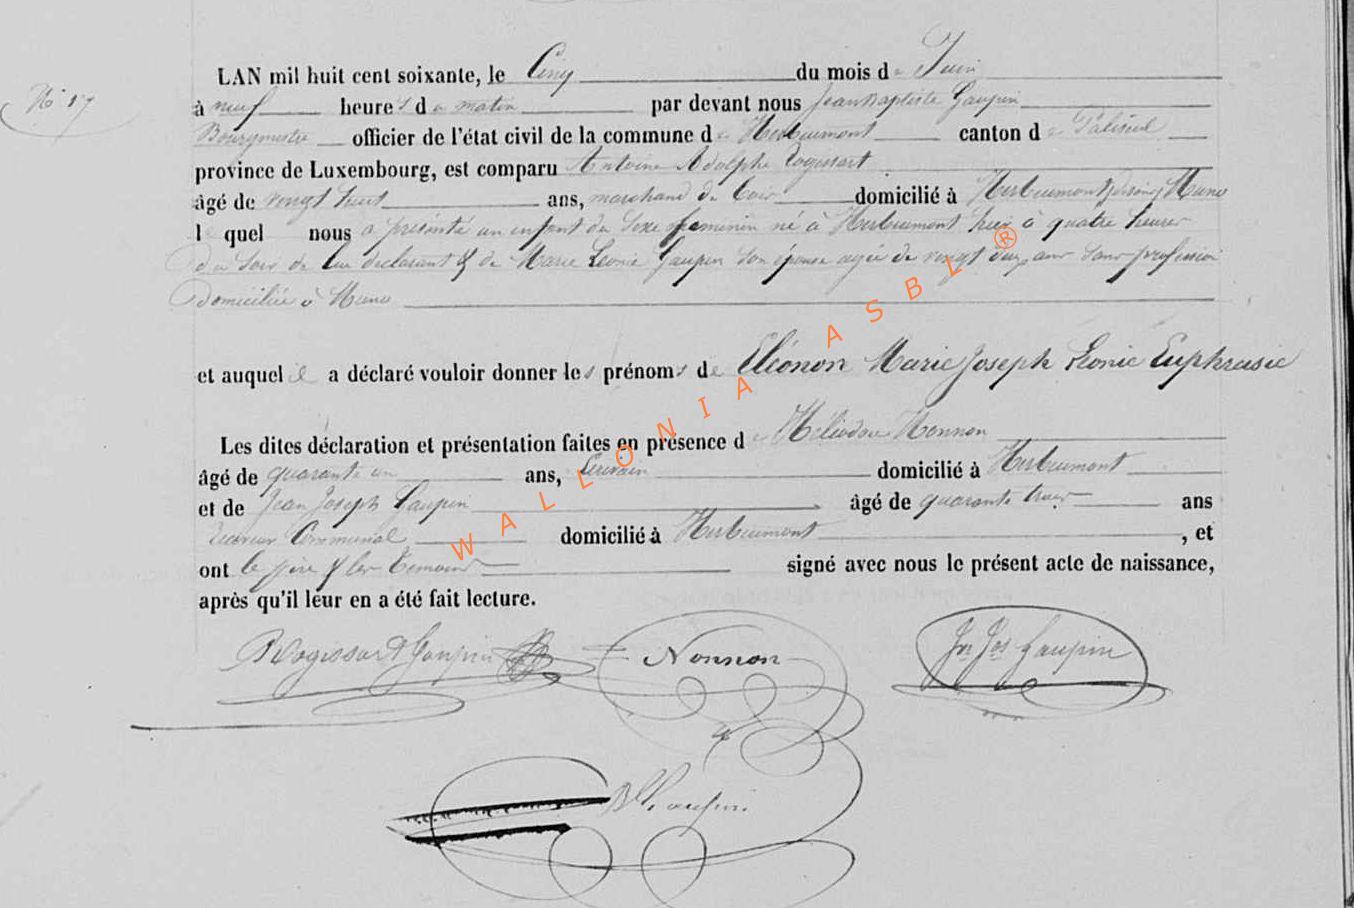 N° 17
LAN mil huit cent soixante, le Cinq du mois de Juin
à neuf heures du matin par devant nous Jean Baptiste Gaupin
Bourgmestre officier de l'état civil de la commune de Herbeumont canton de Paliseul
province de Luxembourg, est comparu Antoine Adolphe Rogissart
âgé de vingt huit ans, marchand de bois domicilié à Herbeumont Muno
lequel nous a présenté un enfant du sexe feminin né à Herbeumont hier à quatre heures
du soir de lui déclarant & de Marie Léonie Gaupin son épouse agée de vingt deux ans sans profession
domiciliée à Muno
et auquel il a déclaré vouloir donner les prénoms de Eléonon Marie Joseph Léonie Euphrasie
Les dites déclaration et présentation faites en présence de Héliodore Nonnon
âgé de quarante un ans, domicilié à Herbeumont
et de Jean Joseph Gaupin âgé de quarante trois ans
receveur Communal domicilié à Herbeumont, et
ont le père & les témoins signé avec nous le présent acte de naissance,
après qu'il leur en a été fait lecture.
Rogissart Gaupin Nonnon Jn Jos Gaupin
JB Gaupin
WALLONIA ASBL ®